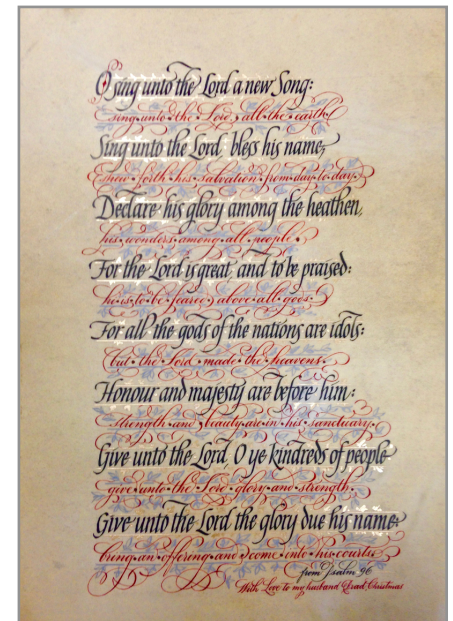 O sing unto the Lord a new Song:
sing unto the Lord, all the earth.
Sing unto the Lord, bless his name;
shew forth his salvation from day to day.
Declare his glory among the heathen,
his wonders among all people.
For the Lord is great, and to be praised:
he is to be feared above all gods.
For all the gods of the nations are idols:
but the Lord made the heavens.
Honour and majesty are before him:
strength and beauty are in his sanctuary.
Give unto the Lord O ye kindreds of people
give unto the Lord glory and strength.
Give unto the Lord the glory due his name:
bring an offering and come into his courts
from Psalm 96
With Love to my husband Brad, Christmas